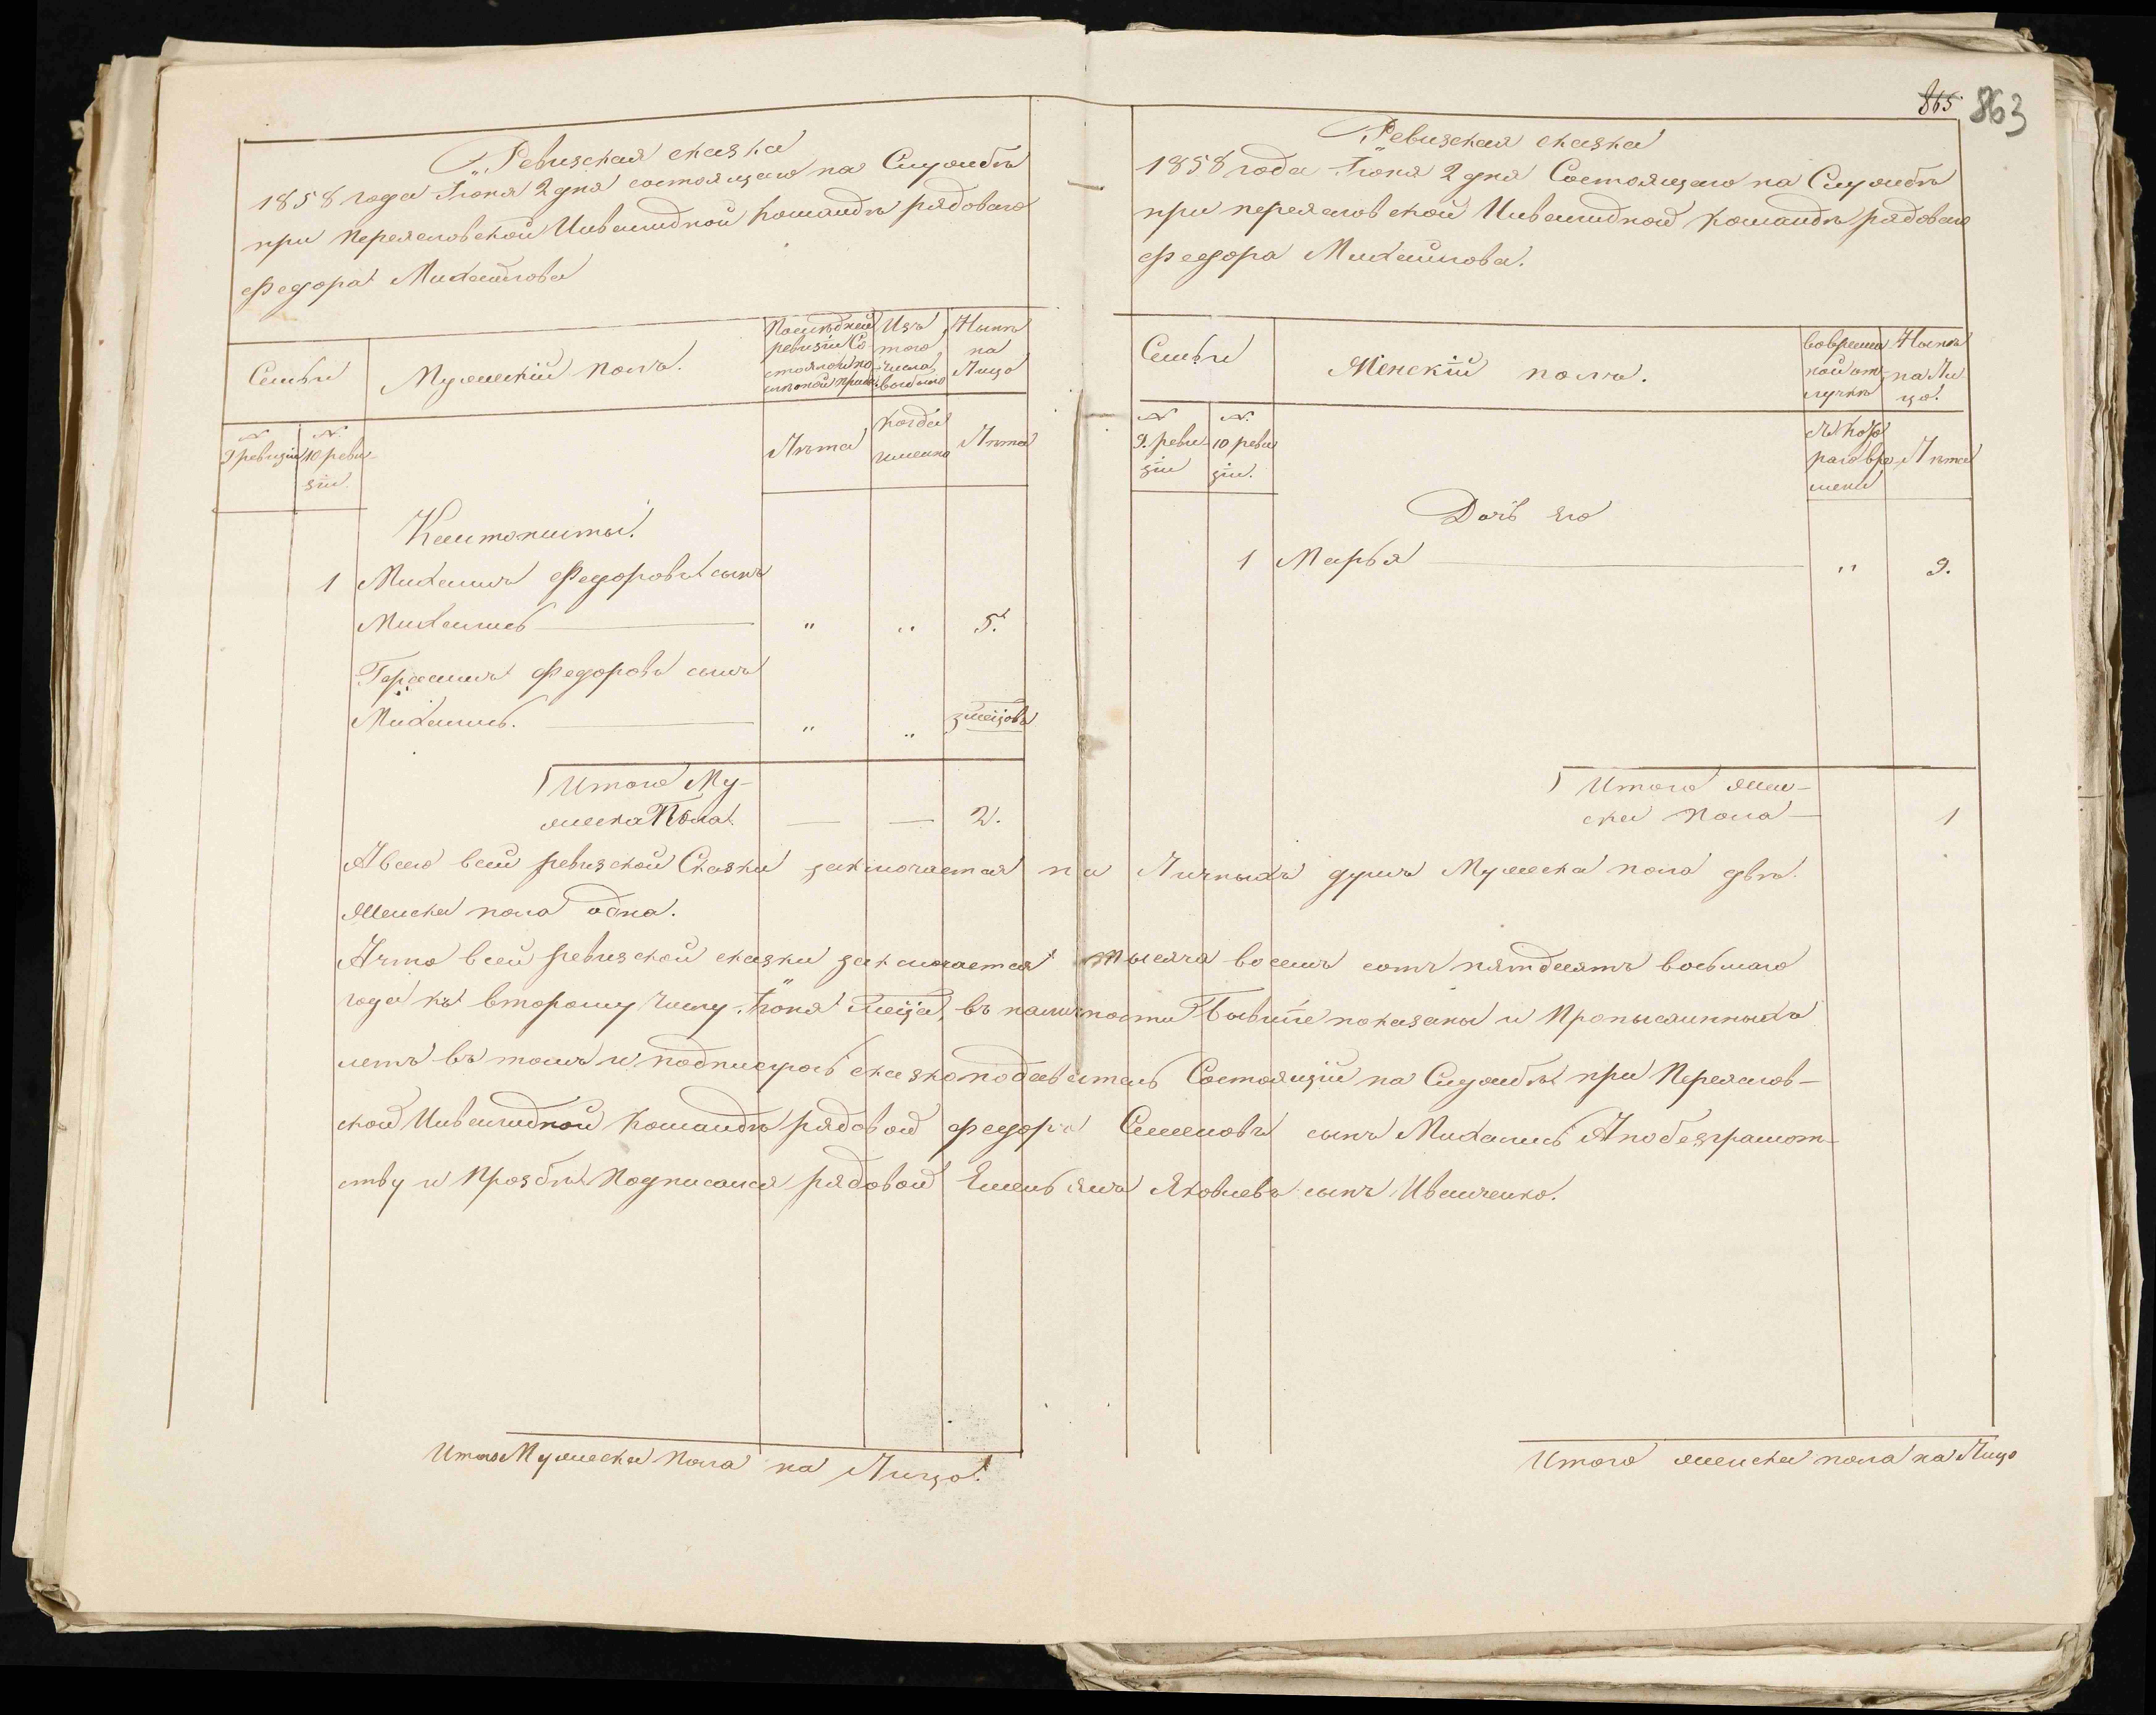 865 863
Ревизская сказка
1858 года Іюня 2 дня состоящаго на Службѣ
при Переяславской Инвалидной командѣ рядоваго
Федора Михайлова
Семьи
Мужескій полъ.
Последней ревизіи Состояло и по
Изъ того числа выбыло
Нынѣ на Лицо
№ 9 ревизіи
№ 10 ревизіи.
Лѣта
Когда именно
Лѣта
Кантонисты.
1 Михаилъ Федоровъ сынъ
Михалиев „ „ 5.
Герасимъ Федоровъ сынъ
Михалиев. „ „ 3 мѣсцовъ
Итого Му-
жеска Пола. — — 2.
Ревизская сказка
1858 года Іюня 2 дня Состоящаго на Службѣ
при переяславской Инвалидной командѣ рядоваго
Федора Михайлова.
Семьи
Женскій полъ.
Во временной отлучкѣ
Нынѣ на Лицо.
№ 9. ревизіи
№ 10 ревизіи.
Съ котораго времени
Лѣта
Дочь его
1 Марья „ 9.
Итого Жен-
ска пола — 1
А всего въ сей ревизской Сказки заключается на Личныхъ душъ Мужеска пола двѣ.
Женска пола одна.
А что в сей ревизской сказки заключается тысяча восемъ сотъ пятдесятъ восьмаго
года къ второму числу Іюня мѣсца, въ наличности Бывшіе показаны и Прописанныхъ
летъ въ томъ и подписуюсь сказкоподаватель Состоящій на Службѣ при Переяслов-
ской Инвалидной Командѣ рядовой федоръ Семеновъ сынъ Михалиев А по безграмот-
ству и Прозбѣ Подписался рядовой Емельянъ Яковлевъ сынъ Иванченко.
Итого Мужеска Пола на Лицо.
Итого женска пола на Лицо